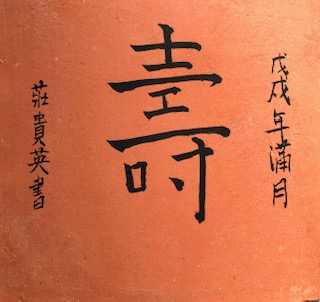 戊戌年滿月
壽
莊貴英書